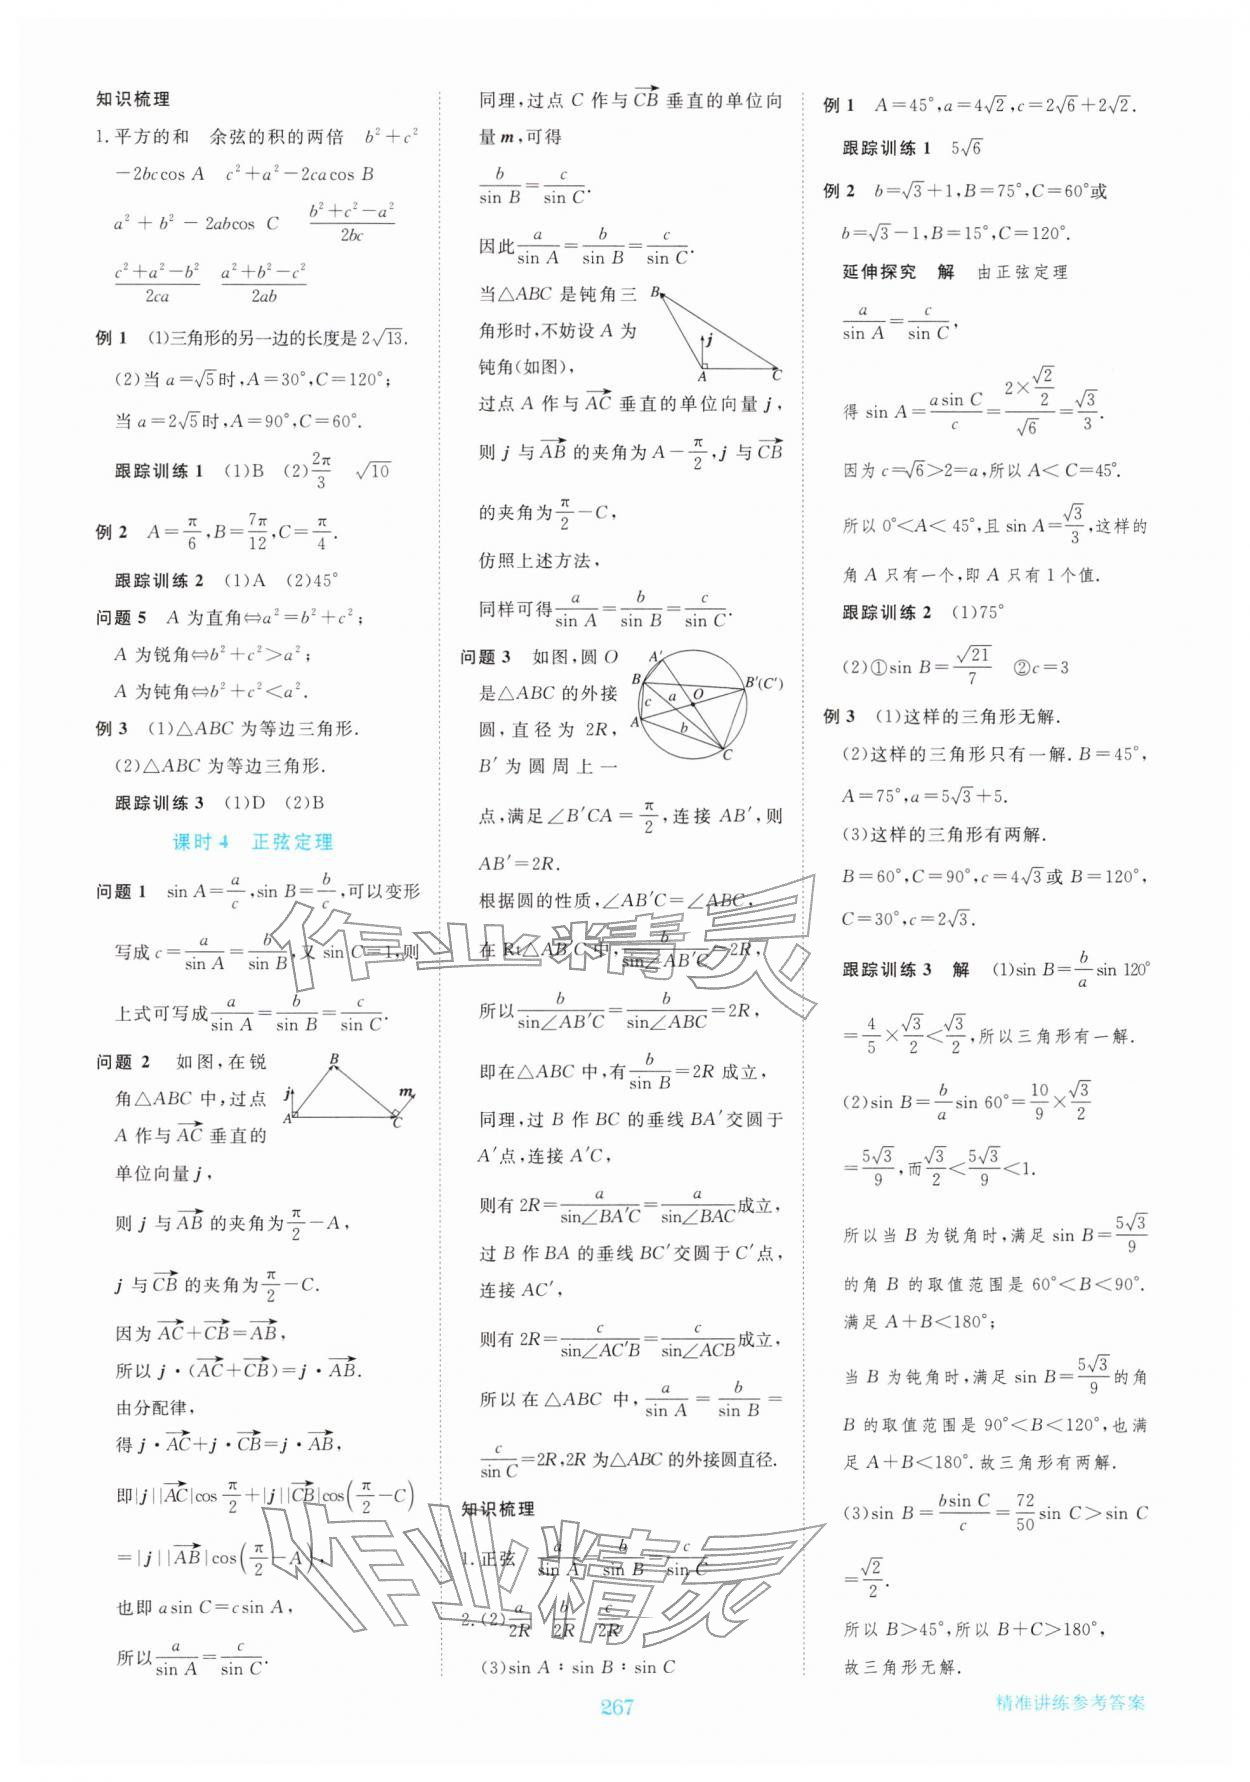 知识梳理
1.平方的和　余弦的积的两倍　b²+c²
-2bccos A　c²+a²-2cacos B
a²+b²-2abcos C　(b²+c²-a²)/2bc
(c²+a²-b²)/2ca　(a²+b²-c²)/2ab
例1　(1)三角形的另一边的长度是2√13.
(2)当a=√5时,A=30°,C=120°;
当a=2√5时,A=90°,C=60°.
跟踪训练1　(1)B　(2)2π/3　√10
例2　A=π/6,B=7π/12,C=π/4.
跟踪训练2　(1)A　(2)45°
问题5　A为直角⇔a²=b²+c²;
A为锐角⇔b²+c²>a²;
A为钝角⇔b²+c²<a².
例3　(1)△ABC为等边三角形.
(2)△ABC为等边三角形.
跟踪训练3　(1)D　(2)B
课时4　正弦定理
问题1　sin A=a/c,sin B=b/c,可以变形
写成c=a/sin A=b/sin B,又sin C=1,则
上式可写成a/sin A=b/sin B=c/sin C.
问题2　如图,在锐
角△ABC中,过点
A作与AC→垂直的
单位向量j,
B
j
m
A
C
则j与AB→的夹角为π/2-A,
j与CB→的夹角为π/2-C.
因为AC→+CB→=AB→,
所以j·(AC→+CB→)=j·AB→.
由分配律,
得j·AC→+j·CB→=j·AB→,
即|j||AC→|cos π/2+|j||CB→|cos(π/2-C)
=|j||AB→|cos(π/2-A),
也即asin C=csin A,
所以a/sin A=c/sin C.
同理,过点C作与CB→垂直的单位向
量m,可得
b/sin B=c/sin C.
因此a/sin A=b/sin B=c/sin C.
当△ABC是钝角三
角形时,不妨设A为
钝角(如图),
B
j
A
C
过点A作与AC→垂直的单位向量j,
则j与AB→的夹角为A-π/2,j与CB→
的夹角为π/2-C,
仿照上述方法,
同样可得a/sin A=b/sin B=c/sin C.
问题3　如图,圆O
是△ABC的外接
圆,直径为2R,
B′为圆周上一
A′
B
B′(C′)
a
O
c
A
b
C
点,满足∠B′CA=π/2,连接AB′,则
AB′=2R.
根据圆的性质,∠AB′C=∠ABC,
在Rt△AB′C中,b/sin∠AB′C=2R,
所以b/sin∠AB′C=b/sin∠ABC=2R,
即在△ABC中,有b/sin B=2R成立,
同理,过B作BC的垂线BA′交圆于
A′点,连接A′C,
则有2R=a/sin∠BA′C=a/sin∠BAC成立,
过B作BA的垂线BC′交圆于C′点,
连接AC′,
则有2R=c/sin∠AC′B=c/sin∠ACB成立,
所以在△ABC中,a/sin A=b/sin B=
c/sin C=2R,2R为△ABC的外接圆直径.
知识梳理
1.正弦　a/sin A=b/sin B=c/sin C
2.(2)a/2R　b/2R　c/2R
(3)sin A∶sin B∶sin C
例1　A=45°,a=4√2,c=2√6+2√2.
跟踪训练1　5√6
例2　b=√3+1,B=75°,C=60°或
b=√3-1,B=15°,C=120°.
延伸探究　解　由正弦定理
a/sin A=c/sin C,
得sin A=asin C/c=(2×√2/2)/√6=√3/3.
因为c=√6>2=a,所以A<C=45°.
所以0°<A<45°,且sin A=√3/3,这样的
角A只有一个,即A只有1个值.
跟踪训练2　(1)75°
(2)①sin B=√21/7　②c=3
例3　(1)这样的三角形无解.
(2)这样的三角形只有一解.B=45°,
A=75°,a=5√3+5.
(3)这样的三角形有两解.
B=60°,C=90°,c=4√3或B=120°,
C=30°,c=2√3.
跟踪训练3　解　(1)sin B=b/a sin 120°
=4/5×√3/2<√3/2,所以三角形有一解.
(2)sin B=b/a sin 60°=10/9×√3/2
=5√3/9,而√3/2<5√3/9<1.
所以当B为锐角时,满足sin B=5√3/9
的角B的取值范围是60°<B<90°.
满足A+B<180°;
当B为钝角时,满足sin B=5√3/9的角
B的取值范围是90°<B<120°,也满
足A+B<180°.故三角形有两解.
(3)sin B=bsin C/c=72/50 sin C>sin C
=√2/2.
所以B>45°,所以B+C>180°,
故三角形无解.
作业精灵
作业精灵
267
精准讲练参考答案